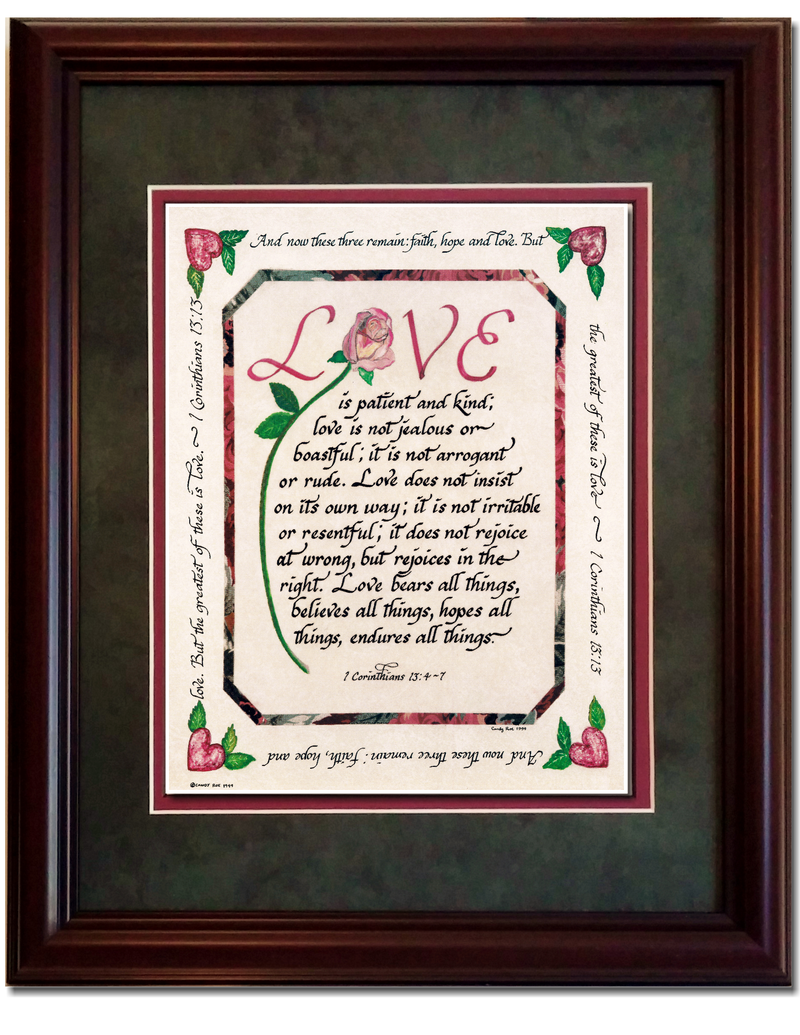 And now these three remain: faith, hope and love. But
the greatest of these is love ~ 1 Corinthians 13:13
And now these three remain: faith, hope and
love. But the greatest of these is love. ~ 1 Corinthians 13:13
LOVE
is patient and kind;
love is not jealous or
boastful; it is not arrogant
or rude. Love does not insist
on its own way; it is not irritable
or resentful; it does not rejoice
at wrong, but rejoices in the
right. Love bears all things,
believes all things, hopes all
things, endures all things.
1 Corinthians 13:4~7
Candy Roe 1999
©CANDY ROE 1999